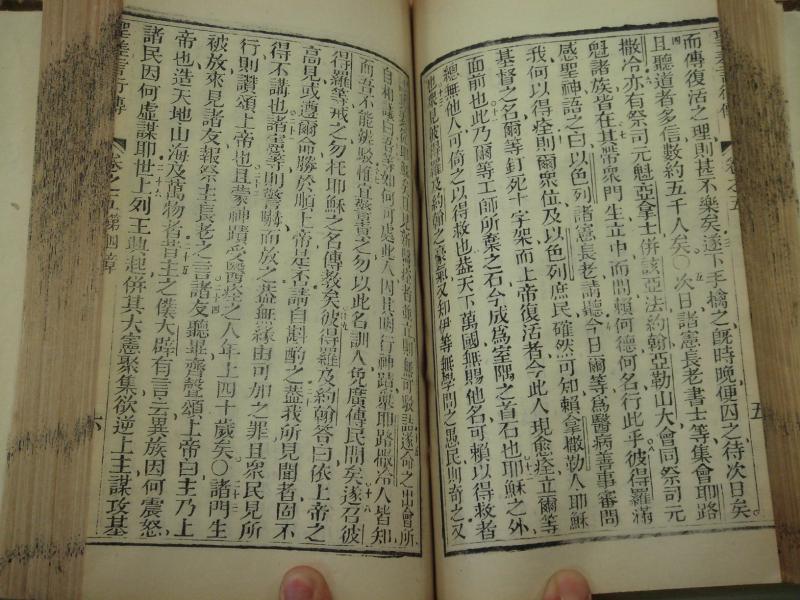 而傳復活之理則甚不樂矣遂下手擒之旣時晚便囚之待次日矣
四 且聽道者多信數約五千人矣〇五 次日諸憲長老書士等集會耶路
撒冷亦有祭司元魁亞拿士併該亞法約翰亞勒山大會同祭司元
魁諸族皆在七 其常衆門生立中而問賴何德何名行此乎八 彼得羅滿
感聖神語之曰以色列諸憲長老請聽今日爾等爲醫病善事審問
我何以得痊則爾衆位及以色列庶民確然可知賴拿撒勒人耶穌
基督之名爾等釘死十字架而上帝復活者今此人現愈痊立爾等
面前也十一 此乃爾等工師所棄之石今成爲室隅之首石也耶穌之外
總無他人可倚之以得救也蓋天下萬國無賜他名可賴以得救者
也十三 衆見彼得羅及約翰之豪氣又知伊等無學問之愚民則奇之又
五
並立則無可駁話遂命之出會所
自相議曰吾等如何可處此人因其明行神蹟衆耶路撒冷人皆知
而吾不能辯駁惟宜嚴責之勿以此名訓人免廣傳民間矣十八 遂召彼
得羅等戒之勿托耶穌之名傳教矣十九 彼得羅及約翰答曰依上帝之
高見或遵爾命勝於順上帝是否請自斟酌之二十 蓋我所見聞者固不
得不講也二十一 諸憲等則警嚇而放之蓋無緣由可加之罪且衆民見所
行則讚頌上帝也二十二 且蒙神蹟受醫痊之人年上四十歲矣〇二十三 諸門生
被放來見諸友報祭主長老之言二十四 諸友聽畢齊聲頌上帝曰主乃上
帝也造天地山海及萬物者二十五 昔主之僕大辟有言云異族因何震怒
諸民因何虛謀耶二十六 世上列王興起併其大憲聚集欲逆上主謀攻基
聖差言行傳 卷之五 第四章
六